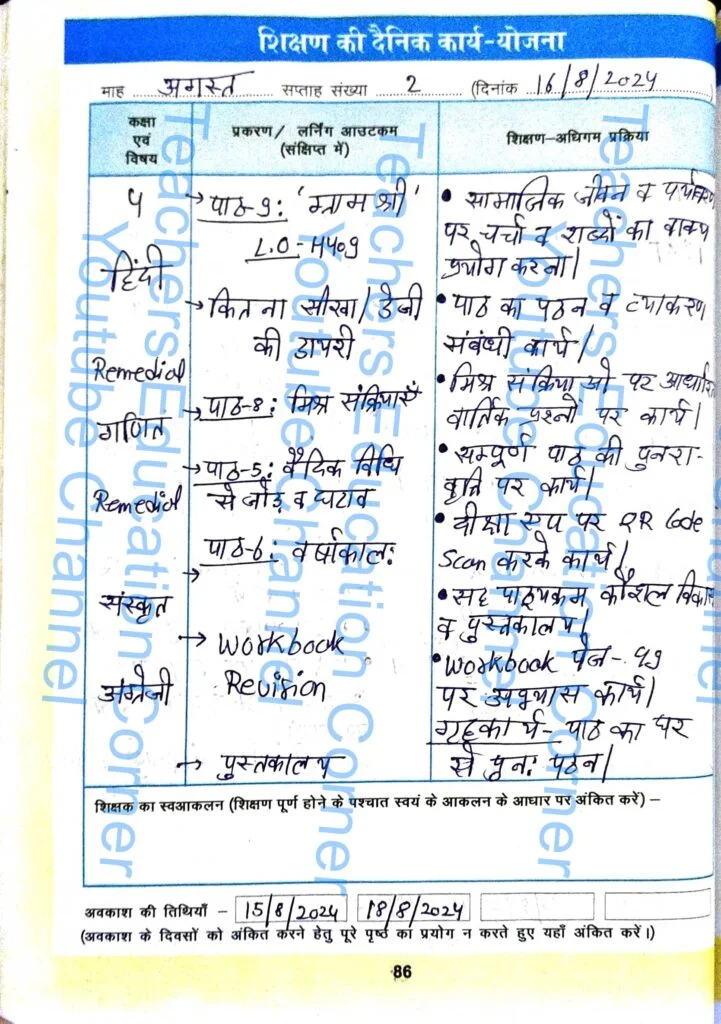 शिक्षण की दैनिक कार्य-योजना
माह अगस्त सप्ताह संख्या 2 (दिनांक 16/8/2024)
कक्षा
एवं
विषय
प्रकरण/ लर्निंग आउटकम
(संक्षिप्त में)
शिक्षण-अधिगम प्रक्रिया
५
हिंदी
Remedial
गणित
Remedial
संस्कृत
अंग्रेजी
→ पाठ-9: 'ग्राम श्री'
L.O-H409
→ कितना सीखा/ डेजी
की डायरी
→ पाठ-8: मिश्र संक्रियाएँ
→ पाठ-5: वैदिक विधि
से जोड़ व घटाव
पाठ-6: वर्षाकालः
→
→ Workbook
Revision
→ पुस्तकालय
• सामाजिक जीवन व पर्यावरण
पर चर्चा व शब्दों का वाक्य
प्रयोग करना।
• पाठ का पठन व व्याकरण
संबंधी कार्य।
• मिश्र संक्रियाओं पर आधारित
वार्तिक प्रश्नों पर कार्य।
• सम्पूर्ण पाठ की पुनरा-
वृत्ति पर कार्य।
• दीक्षा एप पर QR Code
Scan करके कार्य।
• सह पाठ्यक्रम कौशल विकास
व पुस्तकालय।
• Workbook पेज- 59
पर अभ्यास कार्य।
गृहकार्य- पाठ का घर
से पुनः पठन।
शिक्षक का स्वआकलन (शिक्षण पूर्ण होने के पश्चात स्वयं के आकलन के आधार पर अंकित करें) –
अवकाश की तिथियाँ – 15/8/2024 18/8/2024
(अवकाश के दिवसों को अंकित करने हेतु पूरे पृष्ठ का प्रयोग न करते हुए यहाँ अंकित करें।)
86
Teachers Education Corner
Youtube Channel
Teachers Education Corner
Youtube Channel
Teachers Education Corner
Youtube Channel